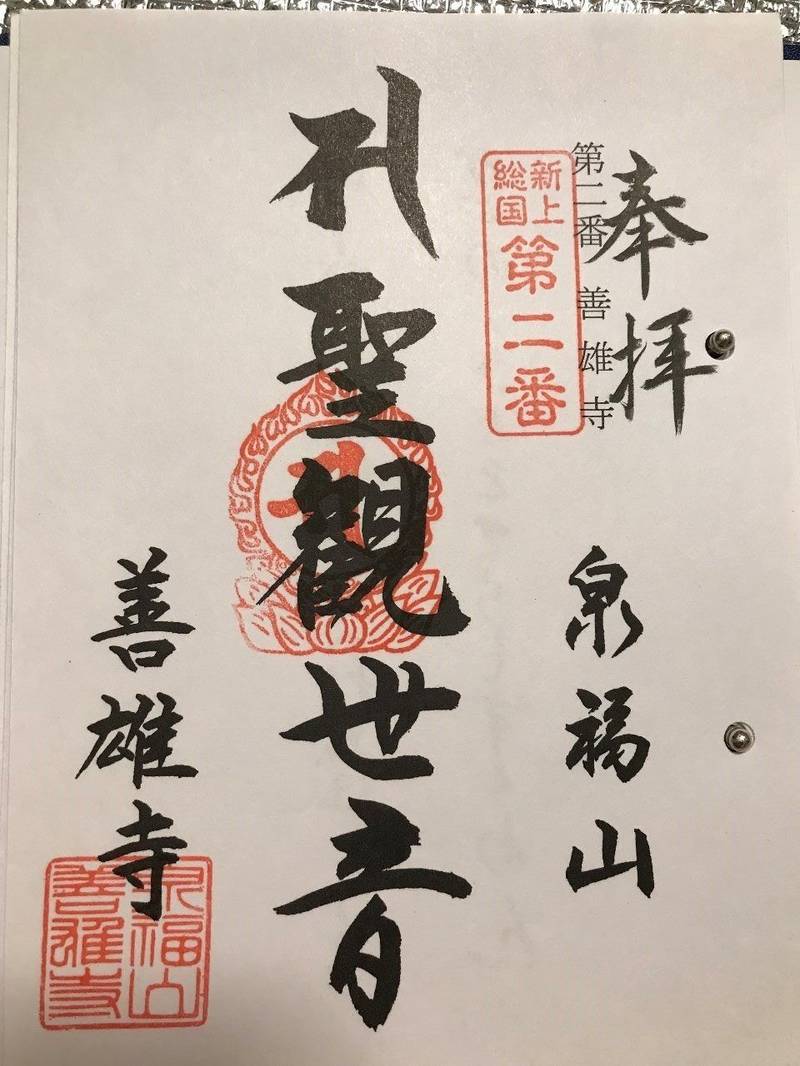 奉拝
泉福山
第二番 善雄寺
新上
総国
第二番
聖観世音
善雄寺
泉福山
善雄寺